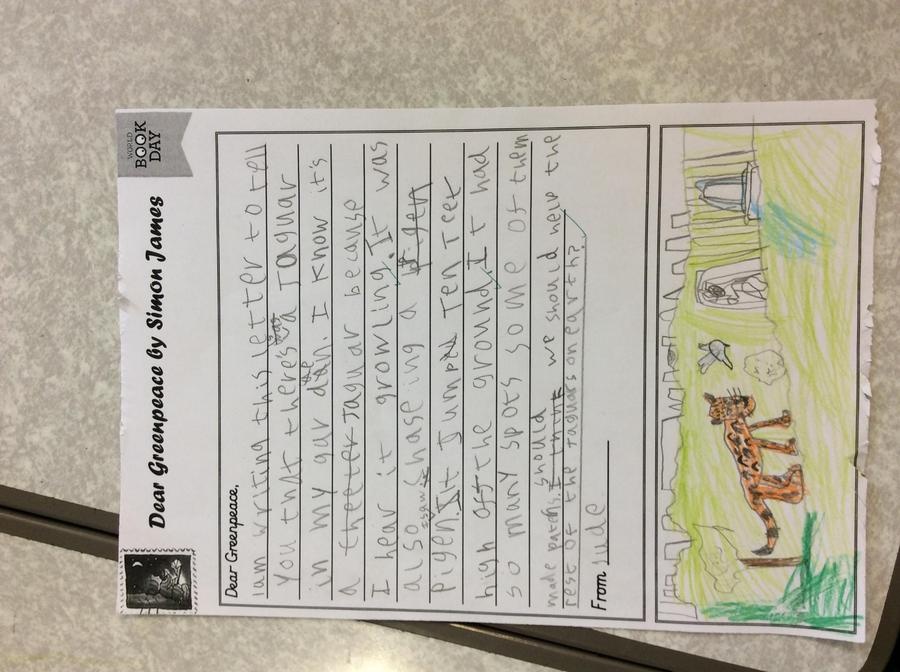 Dear Greenpeace by Simon James
WORLD
BOOK
DAY
Dear Greenpeace,
Iam writing this letter to tell
You that there's a Jaguar
in my garden. I know it's
a Jaguar because
I hear it growling. It was
also haseing a
Pigen. It Jumped Ten Teet
high off the ground. It had
so many spots some of them
made patchs. I should we should help the
rest of the Jaguars on earth?
From Jude